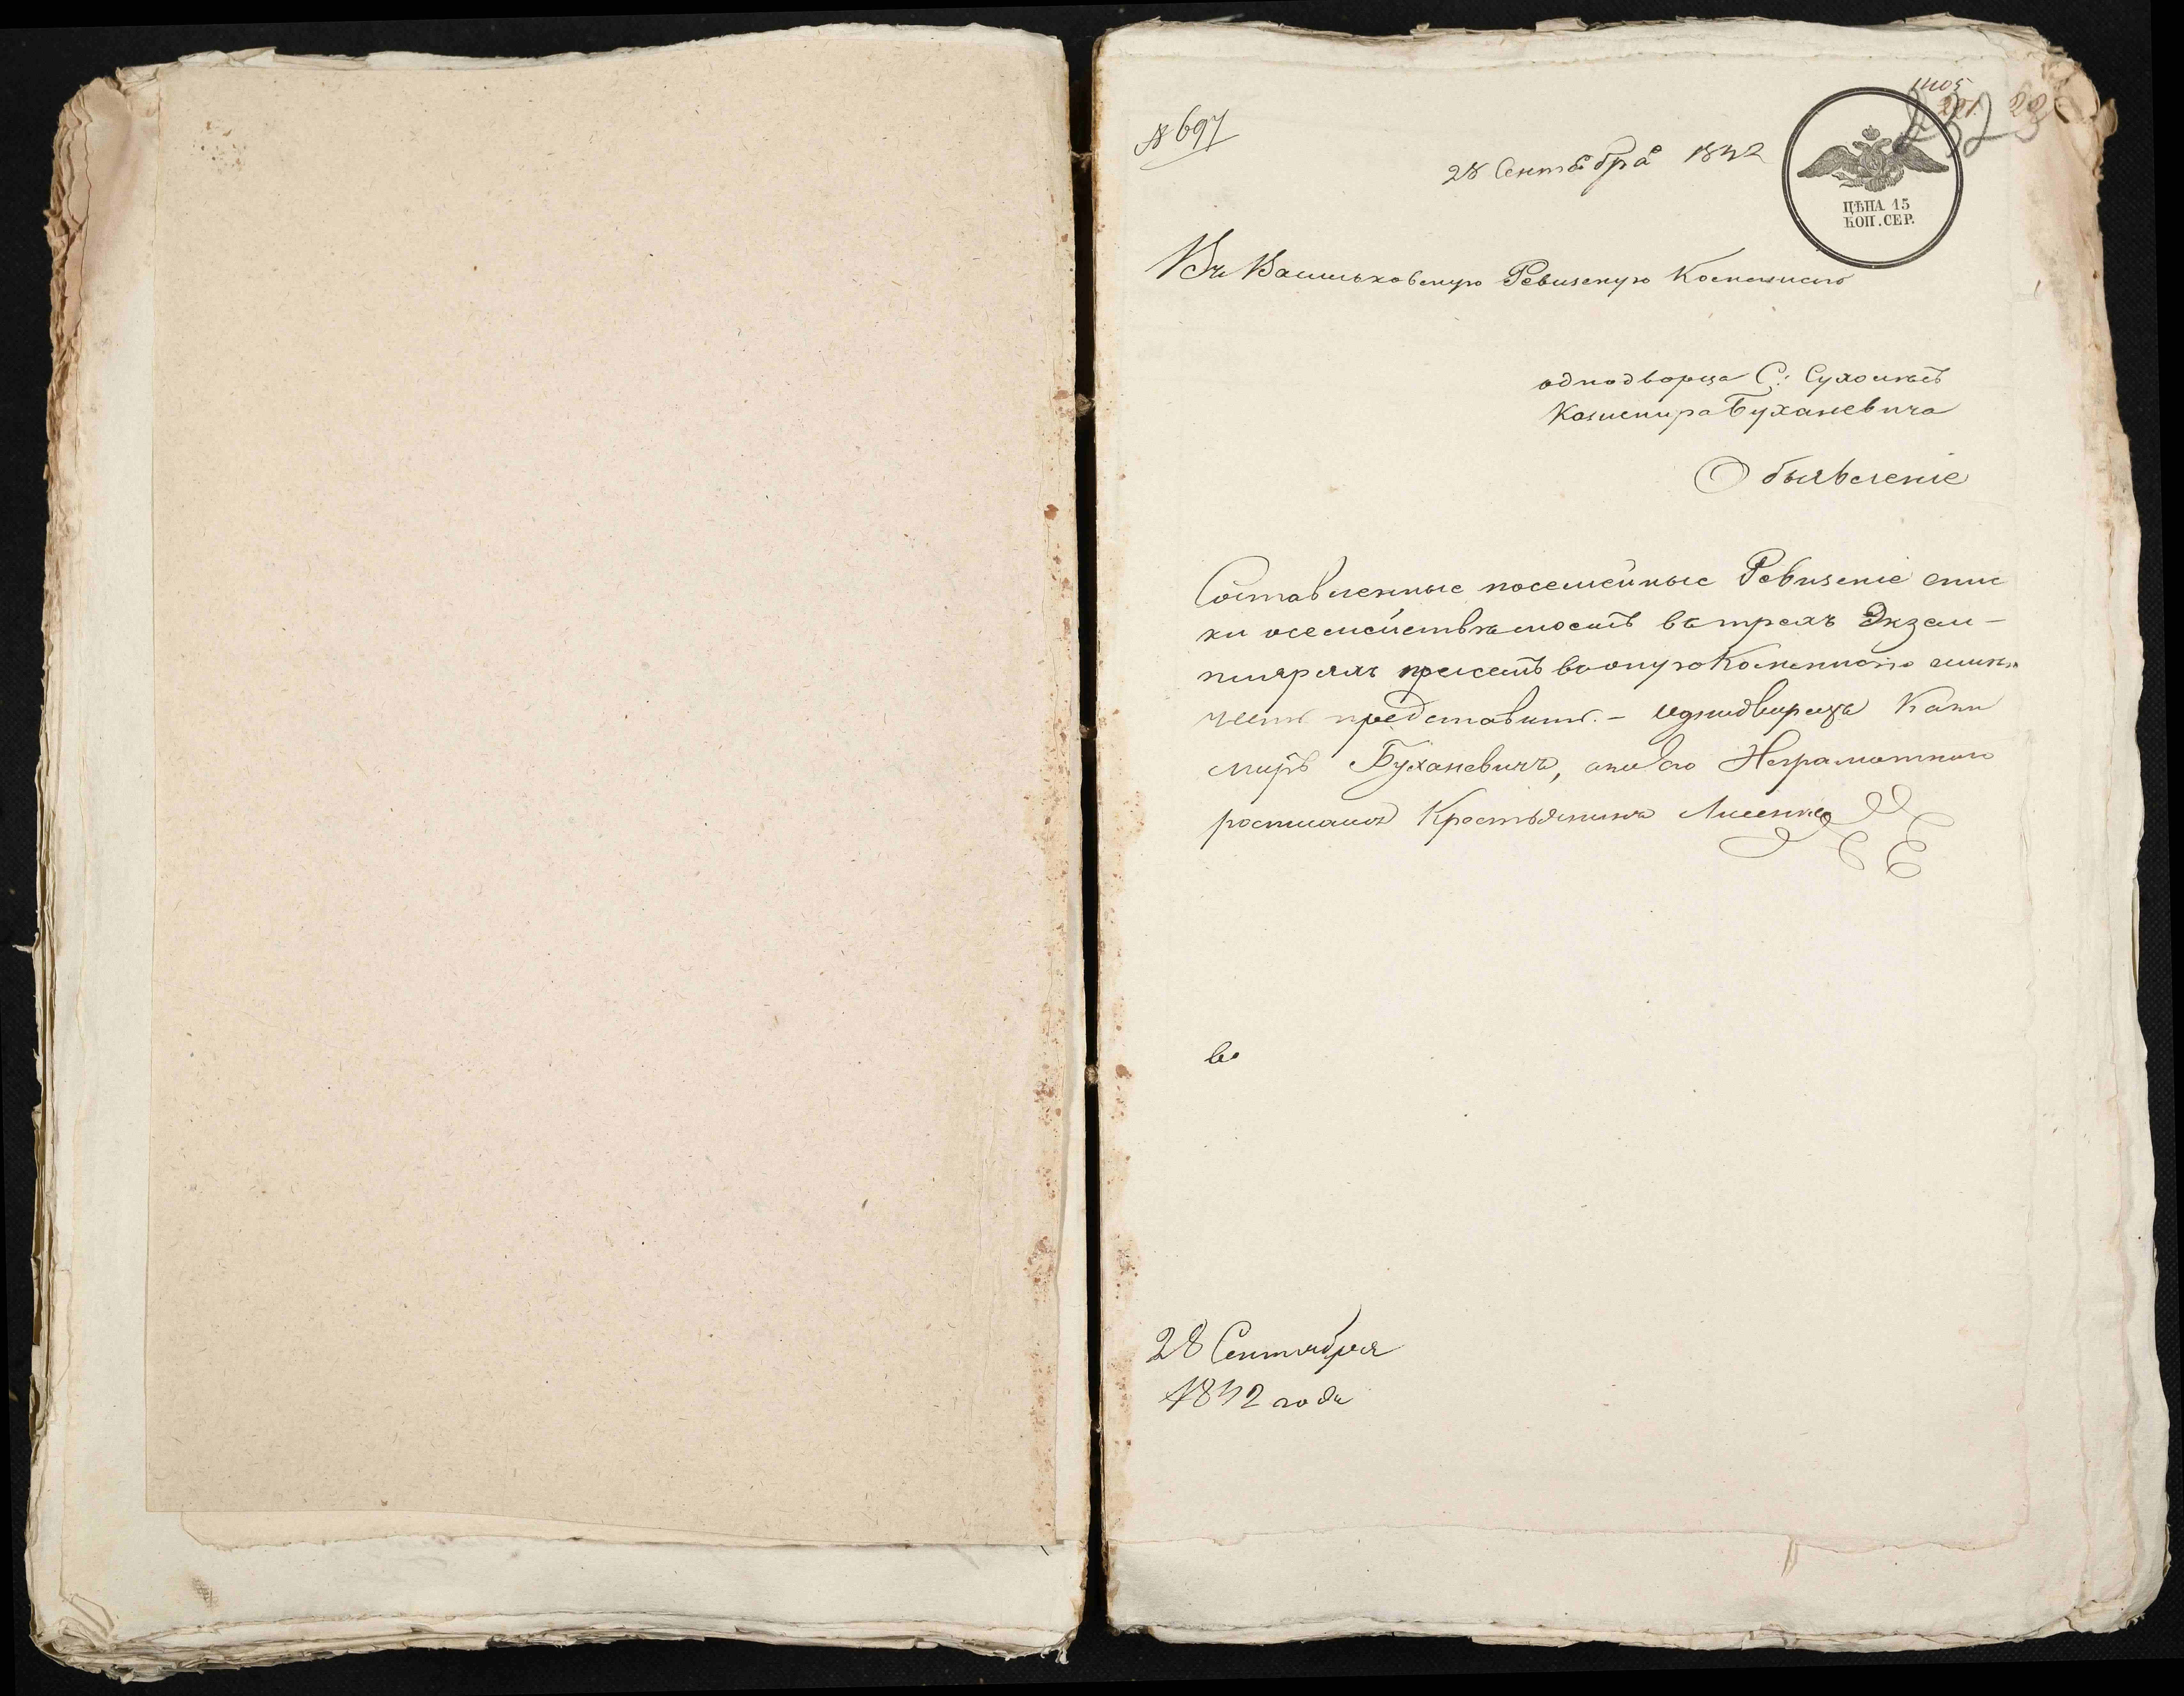 1405
221. 23
232
№ 697
28 Сентября 1842
ЦѢНА 15
КОП. СЕР.
Въ Васильковскую Ревизскую Коммисию
однодворца С: Сухолѣсъ
Казимира Буханевича
Обьявленіе
Составленные посемейные Ревизскіе спис
ки о семействѣ моемъ въ трехъ Экзем-
плярахъ при семъ въ оную Коммисию
честь представить. - Однодворецъ Кази
миръ Буханевичъ, а за его Неграмотного
росписался Крестьянинъ Лисенко
во
28 Сентября
1842 года